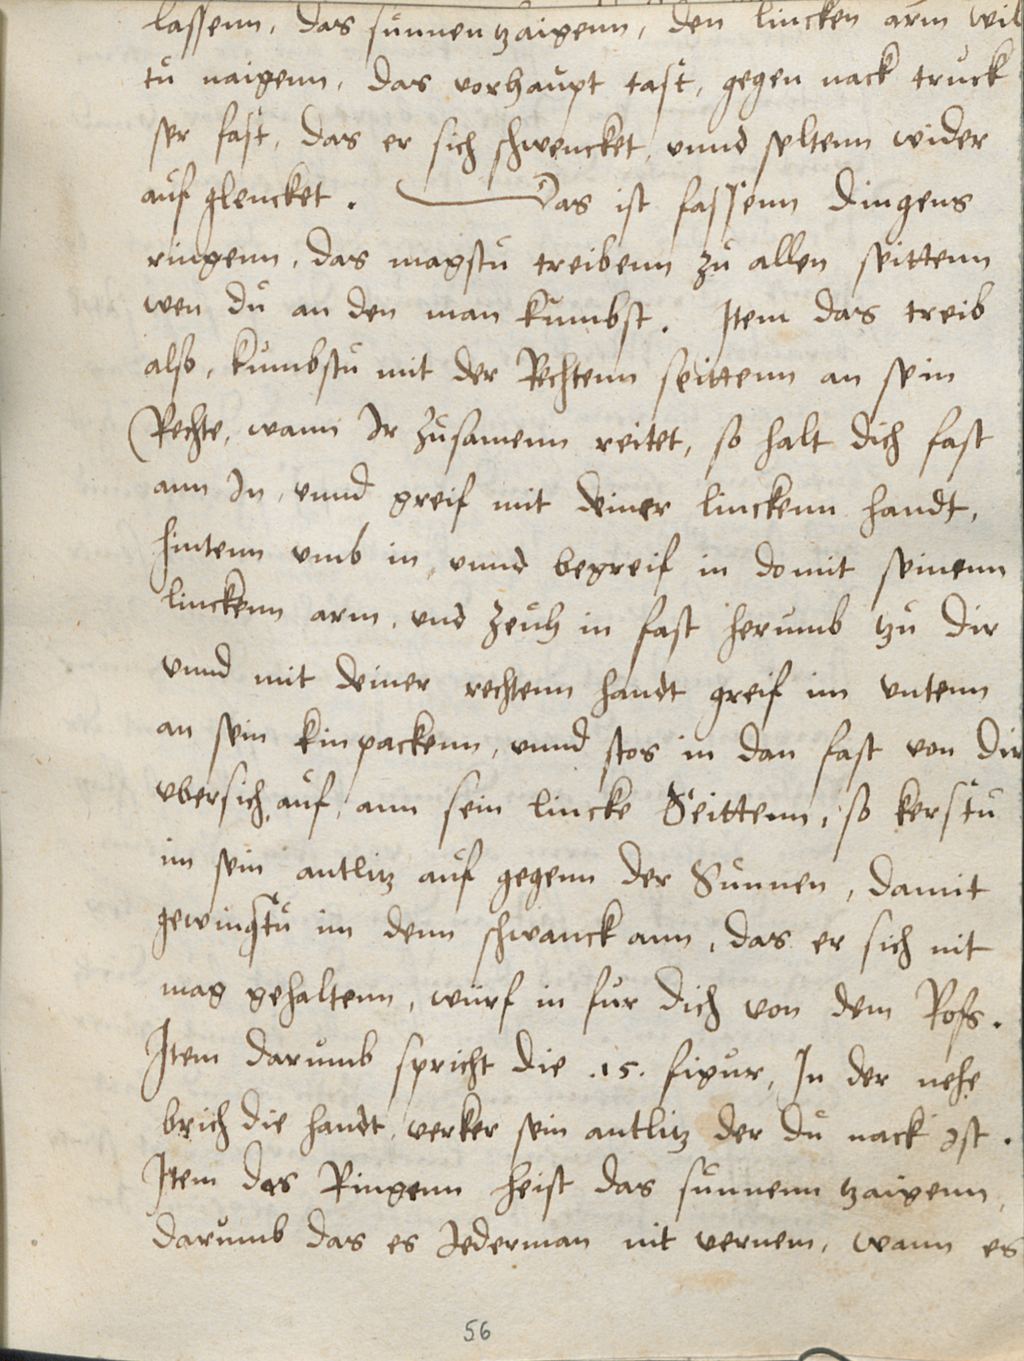 lassenn, das sunnen tzaigenn, den lincken arm wil
tu naigenn, das vorhaupt tast, gegen nack truck
ser fast, das er sich schwencket, vnnd seltenn wider
auf glencket. Das ist fassenn Dingens
ringenn, das magstu treibenn zu allen seittenn
wen du an den man kumbst. Item das treib
also, kumbstu mit der Rechtenn seittenn an sein
Rechte, wann Ir zusamenn reitet, so halt dich fast
ann In, vnnd greif mit deiner linckenn handt,
hintenn vmb in, vnnd begreif in domit seinenn
linckenn arm, vnd zeuh in fast herumb tzu dir
vnnd mit deiner rechtenn handt greif im vntenn
an sein kinpackenn, vnnd stos in dan fast von dir
vbersich auf, ann sein lincke Seittenn, so kerstu
im sein antlitz auf gegenn der Sunnen, damit
gewingstu im denn schwanck ann, das er sich nit
mag gehaltenn, würf in fur dich von dem Rofs.
Item darumb spricht die .15. figur, In der nehe
brich die handt, verker sein antlitz der du nack ist.
Item das Ringenn heist das sunnenn tzaigenn,
darumb das es Jederman nit vernem, wann es
56